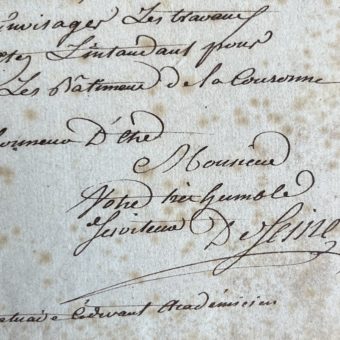 Envisager Les travaux
Lintandant pour
Les Bâtiment de la Couronne
honneur D'être
Monsieur
Votre très humble
serviteur DeSeine
statuaire Cidevant Académicien